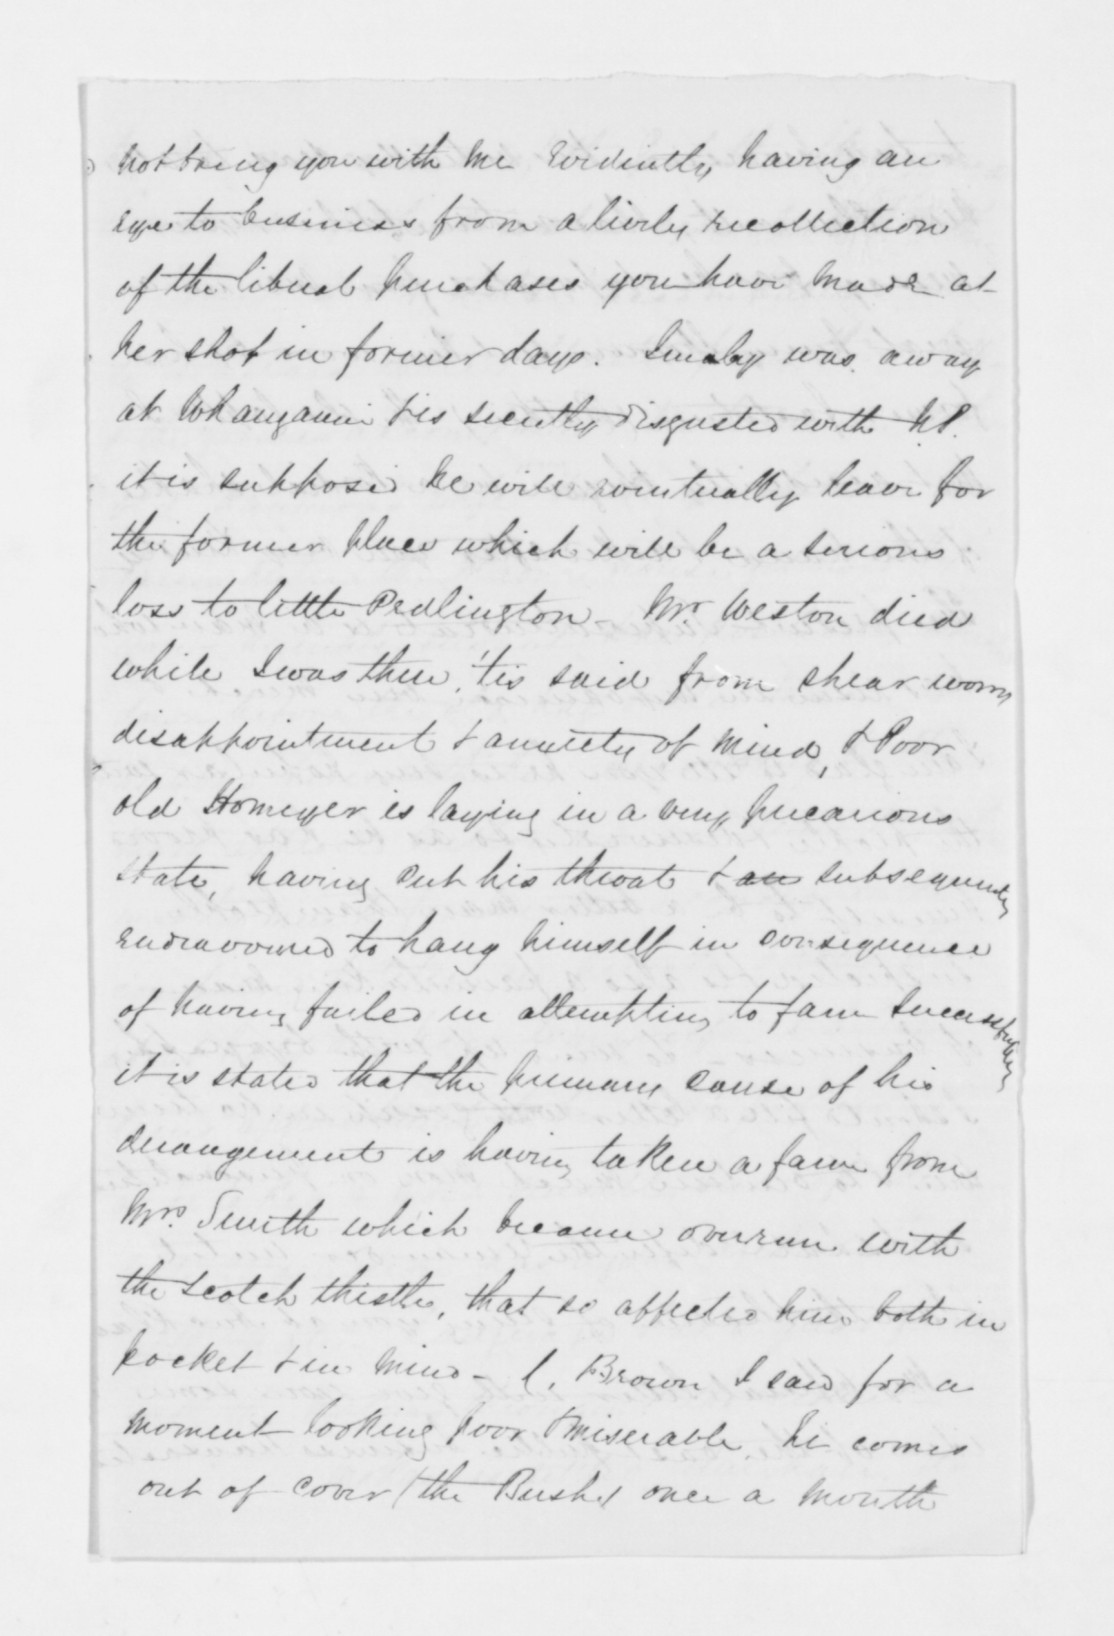 not bring you with me Evidently having an
eye to business from a lively recollection
of the liberal purchases you have made at
her shop in former days. Smaley was away
at Whanganui & is secretly disgusted with N.P.
it is supposed he will eventually leave for
the former place which will be a serious
loss to little Pedlington - Mr. Weston died
while I was there, 'tis said from shear worry
disappointment & anxiety of mind, & Poor
old Homeyer is laying in a very precarious
state, having cut his throat & subsequently
endeavoured to hang himself in consequence
of having failed in attempting to farm successfully
it is stated that the primary cause of his
derangement is having taken a farm from
Mrs. Smith which became overrun with
the Scotch thistle, that so affected him both in
pocket & in mind - C. Brown I saw for a
moment looking poor & miserable. he comes
out of cover (the Bush) once a month